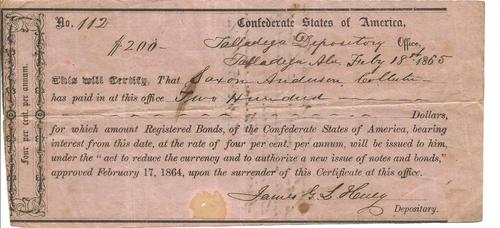 No. 112
Confederate States of America,
$200-
Talladega Depository Office,
Talladega Ala. Feby 18th 1865
This will Certify, That Saxon Anderson, Collector
has paid in at this office Two Hundred
Dollars,
for which amount Registered Bonds, of the Confederate States of America, bearing
interest from this date, at the rate of four per cent. per annum, will be issued to him,
under the "act to reduce the currency and to authorize a new issue of notes and bonds,"
approved February 17, 1864, upon the surrender of this Certificate at this office.
James G. L. Huey
Depositary.
Four per cent. per annum.